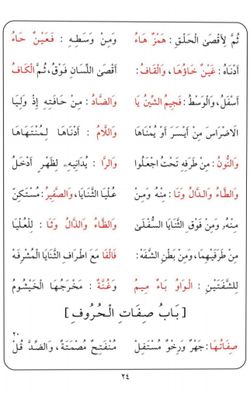 ثُمَّ لِأَقْصَى الْحَلْقِ : هَمْزٌ هَاءُ وَمِنْ وَسَطِهِ : فَعَيْنٌ حَاءُ
أَدْنَاهُ : غَيْنٌ خَاؤُهَا ، وَالْقَافُ : أَقْصَى اللِّسَانِ فَوْقُ ، ثُمَّ الْكَافُ
أَسْفَلُ ، وَالْوَسْطُ : فَجِيمُ الشِّينُ يَا وَالضَّادُ : مِنْ حَافَتِهِ إِذْ وَلِيَا
الاضْرَاسَ مِنْ أَيْسَرَ أَوْ يُمْنَاهَا وَاللَّامُ : أَدْنَاهَا لِمُنْتَهَاهَا
وَالنُّونُ : مِنْ طَرَفِهِ تَحْتُ اجْعَلُوا وَالرَّا : يُدَانِيهِ لِظَهْرٍ أَدْخَلُ
وَالطَّاءُ وَالدَّالُ وَتَا : مِنْهُ وَمِنْ عُلْيَا الثَّنَايَا ، وَالصَّفِيرُ : مُسْتَكِنّ
مِنْهُ وَمِنْ فَوْقِ الثَّنَايَا السُّفْلَى وَالظَّاءُ وَالذَّالُ وَثَا : لِلْعُلْيَا
مِنْ طَرَفَيْهِمَا ، وَمِنْ بَطْنِ الشَّفَهْ : فَالْفَا مَعَ اطْرَافِ الثَّنَايَا الْمُشْرِفَهْ
لِلشَّفَتَيْنِ : الْوَاوُ بَاءٌ مِيمُ وَغُنَّةٌ : مَخْرَجُهَا الْخَيْشُومُ
[ بَابُ صِفَاتِ الْحُرُوفِ ]
٢٠
صِفَاتُهَا : جَهْرٌ وَرِخْوٌ مُسْتَفِلْ مُنْفَتِحٌ مُصْمَتَةٌ ، وَالضِّدَّ قُلْ
٢٤